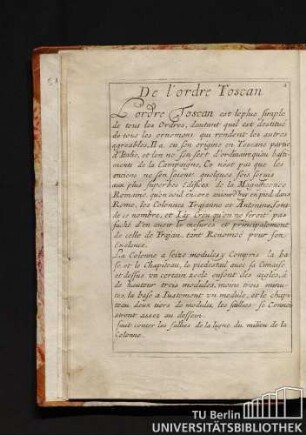 De l'ordre Toscan
L'ordre Toscan est le plus simple
de tous les Ordres, d'autant quil est destitué
de tous les ornemens qui rendent les autres
agreables, Il a eu son origine en Toscane partie
d'Italie, et l'on ne s'en sert d'ordinaire qu'aux basti-
mens de la Campagne, Ce n'est pas que les
entiens ne s'en soient quelques fois servis
aux plus superbes Edifices de la Magnificence
Romaine qu'on voit encore aujourd'huy dans
Rome, les Colonnes Trajanne et Antonine, sont
de ce nombre, et J'ay creu qu'on ne seroit pas
faché d'en avoir les mesures et principalement
de celle de Trajan, tant Renomée pour son
excelence.
La Colonne a seize modules y Compris la ba
se, et le Chapiteau, le piedestal avec sa Cimaise
et dessus un certain
de hauteur trois modules, moins trois minu-
tes, la base a Justement un module, et le chapi
teau deux tiers de module, les saillies se Connoi
stront assez au dessein.
faut conter les saillies de la ligne du milieu de la
Colonne.
TU Berlin
UNIVERSITÄTSBIBLIOTHEK